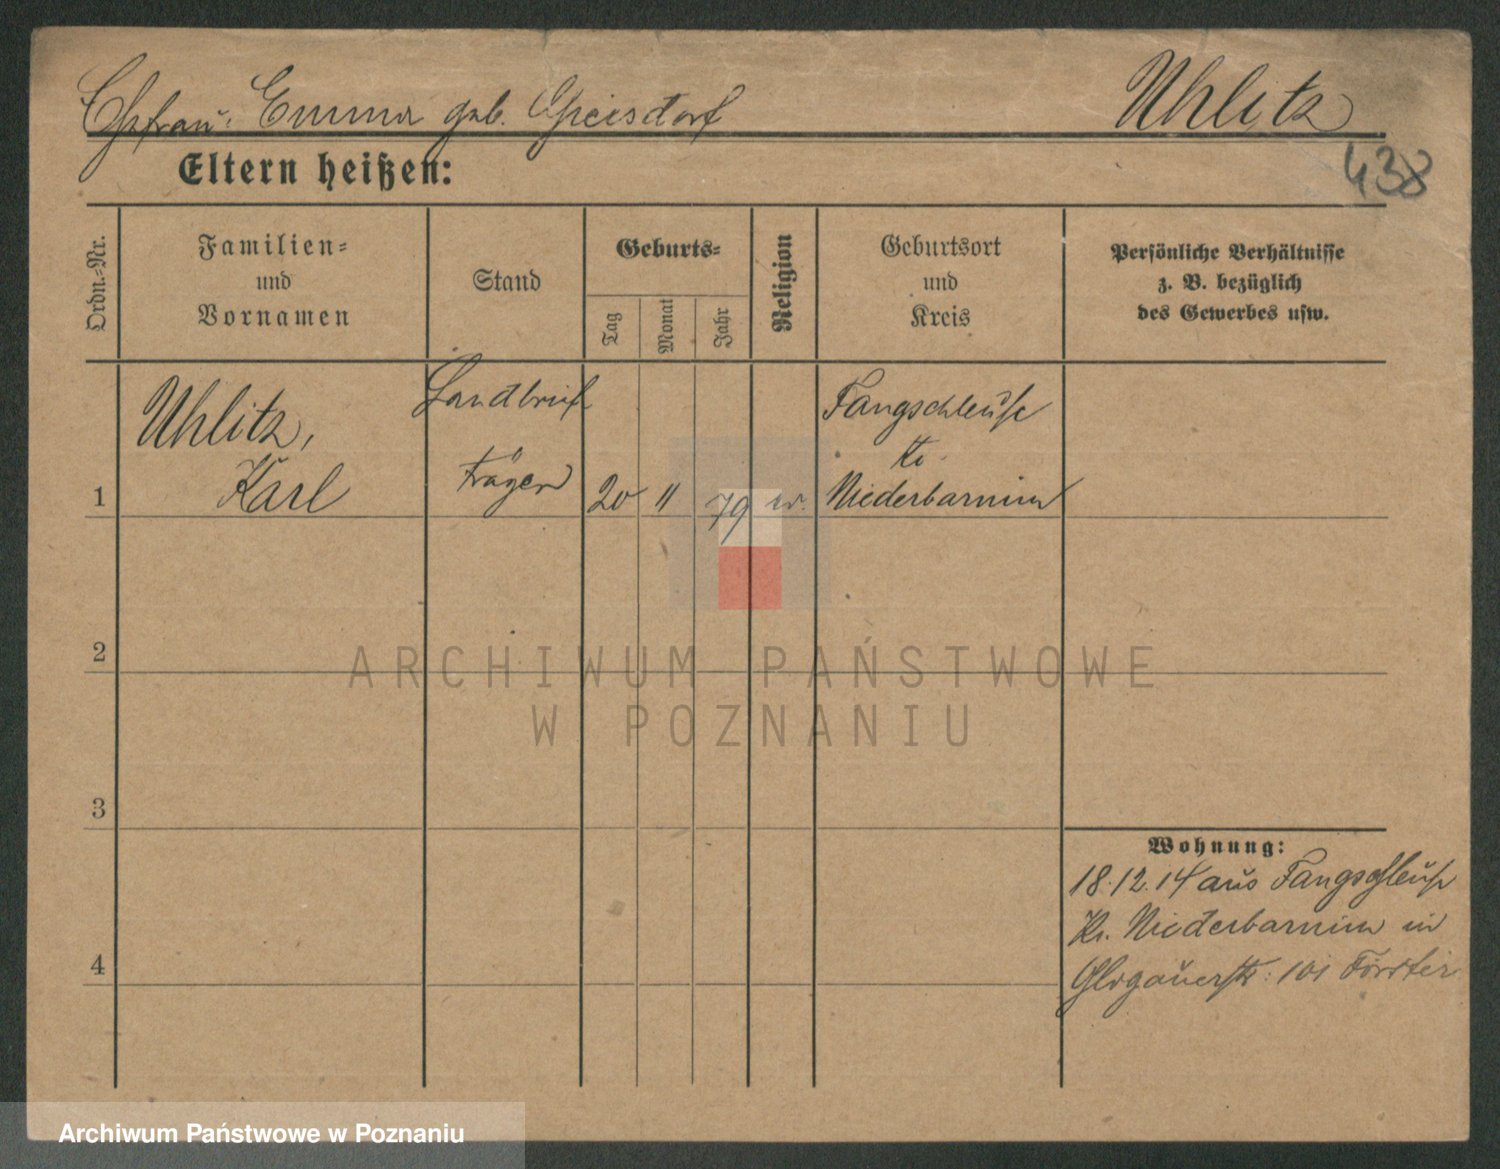 Ehefrau: Emma geb. Giersdorf Uhlitz
438
Eltern heißen:
Ordn.-Nr.
Familien-
und
Vornamen
Stand
Geburts-
Tag
Monat
Jahr
Religion
Geburtsort
und
Kreis
Persönliche Verhältnisse
z. B. bezüglich
des Gewerbes usw.
1
Uhlitz,
Karl
Landbrief
träger
20 11 79
Fangschleuse
Kr.
Niederbarnim
2
3
4
Wohnung:
18.12.14 aus Fangschleuse
Kr. Niederbarnim in
Glogauerstr: 101 Förster
ARCHIWUM PAŃSTWOWE
W POZNANIU
Archiwum Państwowe w Poznaniu